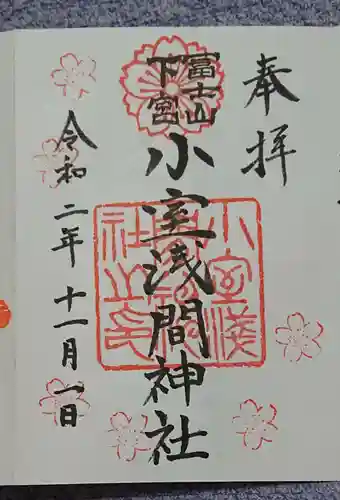 奉拝
富士山
下宮
小室浅間神社
小室浅
間神社
之印
令和二年十一月一日